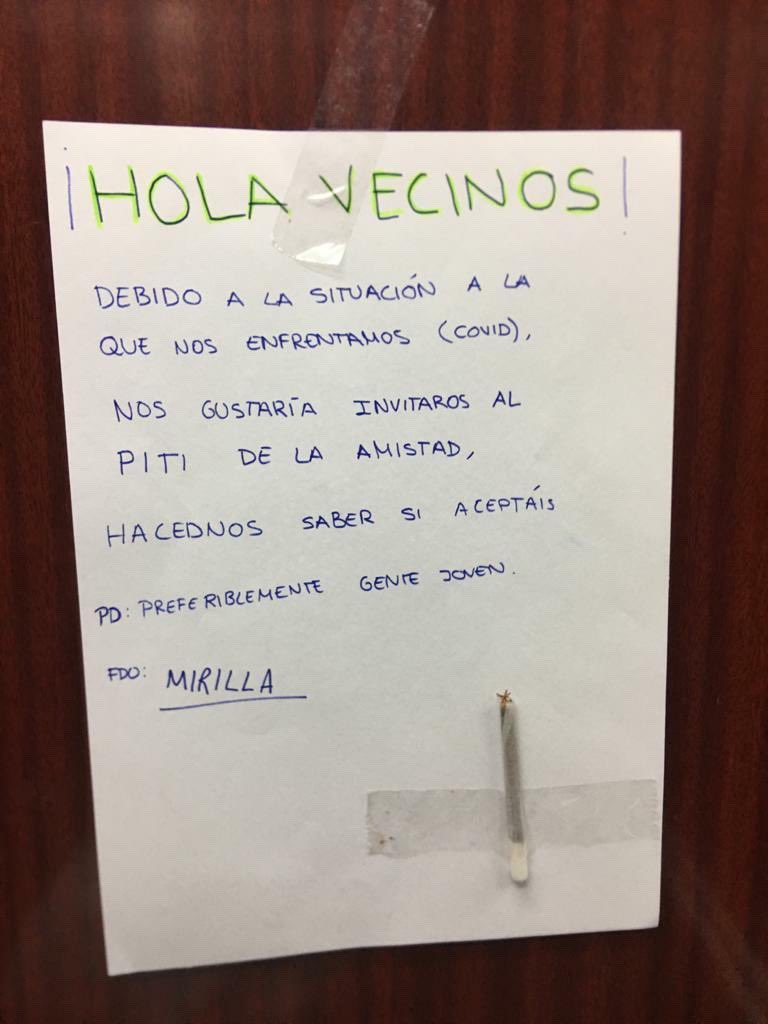 ¡HOLA VECINOS!
DEBIDO A LA SITUACIÓN A LA
QUE NOS ENFRENTAMOS (COVID),
NOS GUSTARÍA INVITAROS AL
PITI DE LA AMISTAD,
HACEDNOS SABER SI ACEPTÁIS
PD: PREFERIBLEMENTE GENTE JOVEN.
FDO: MIRILLA